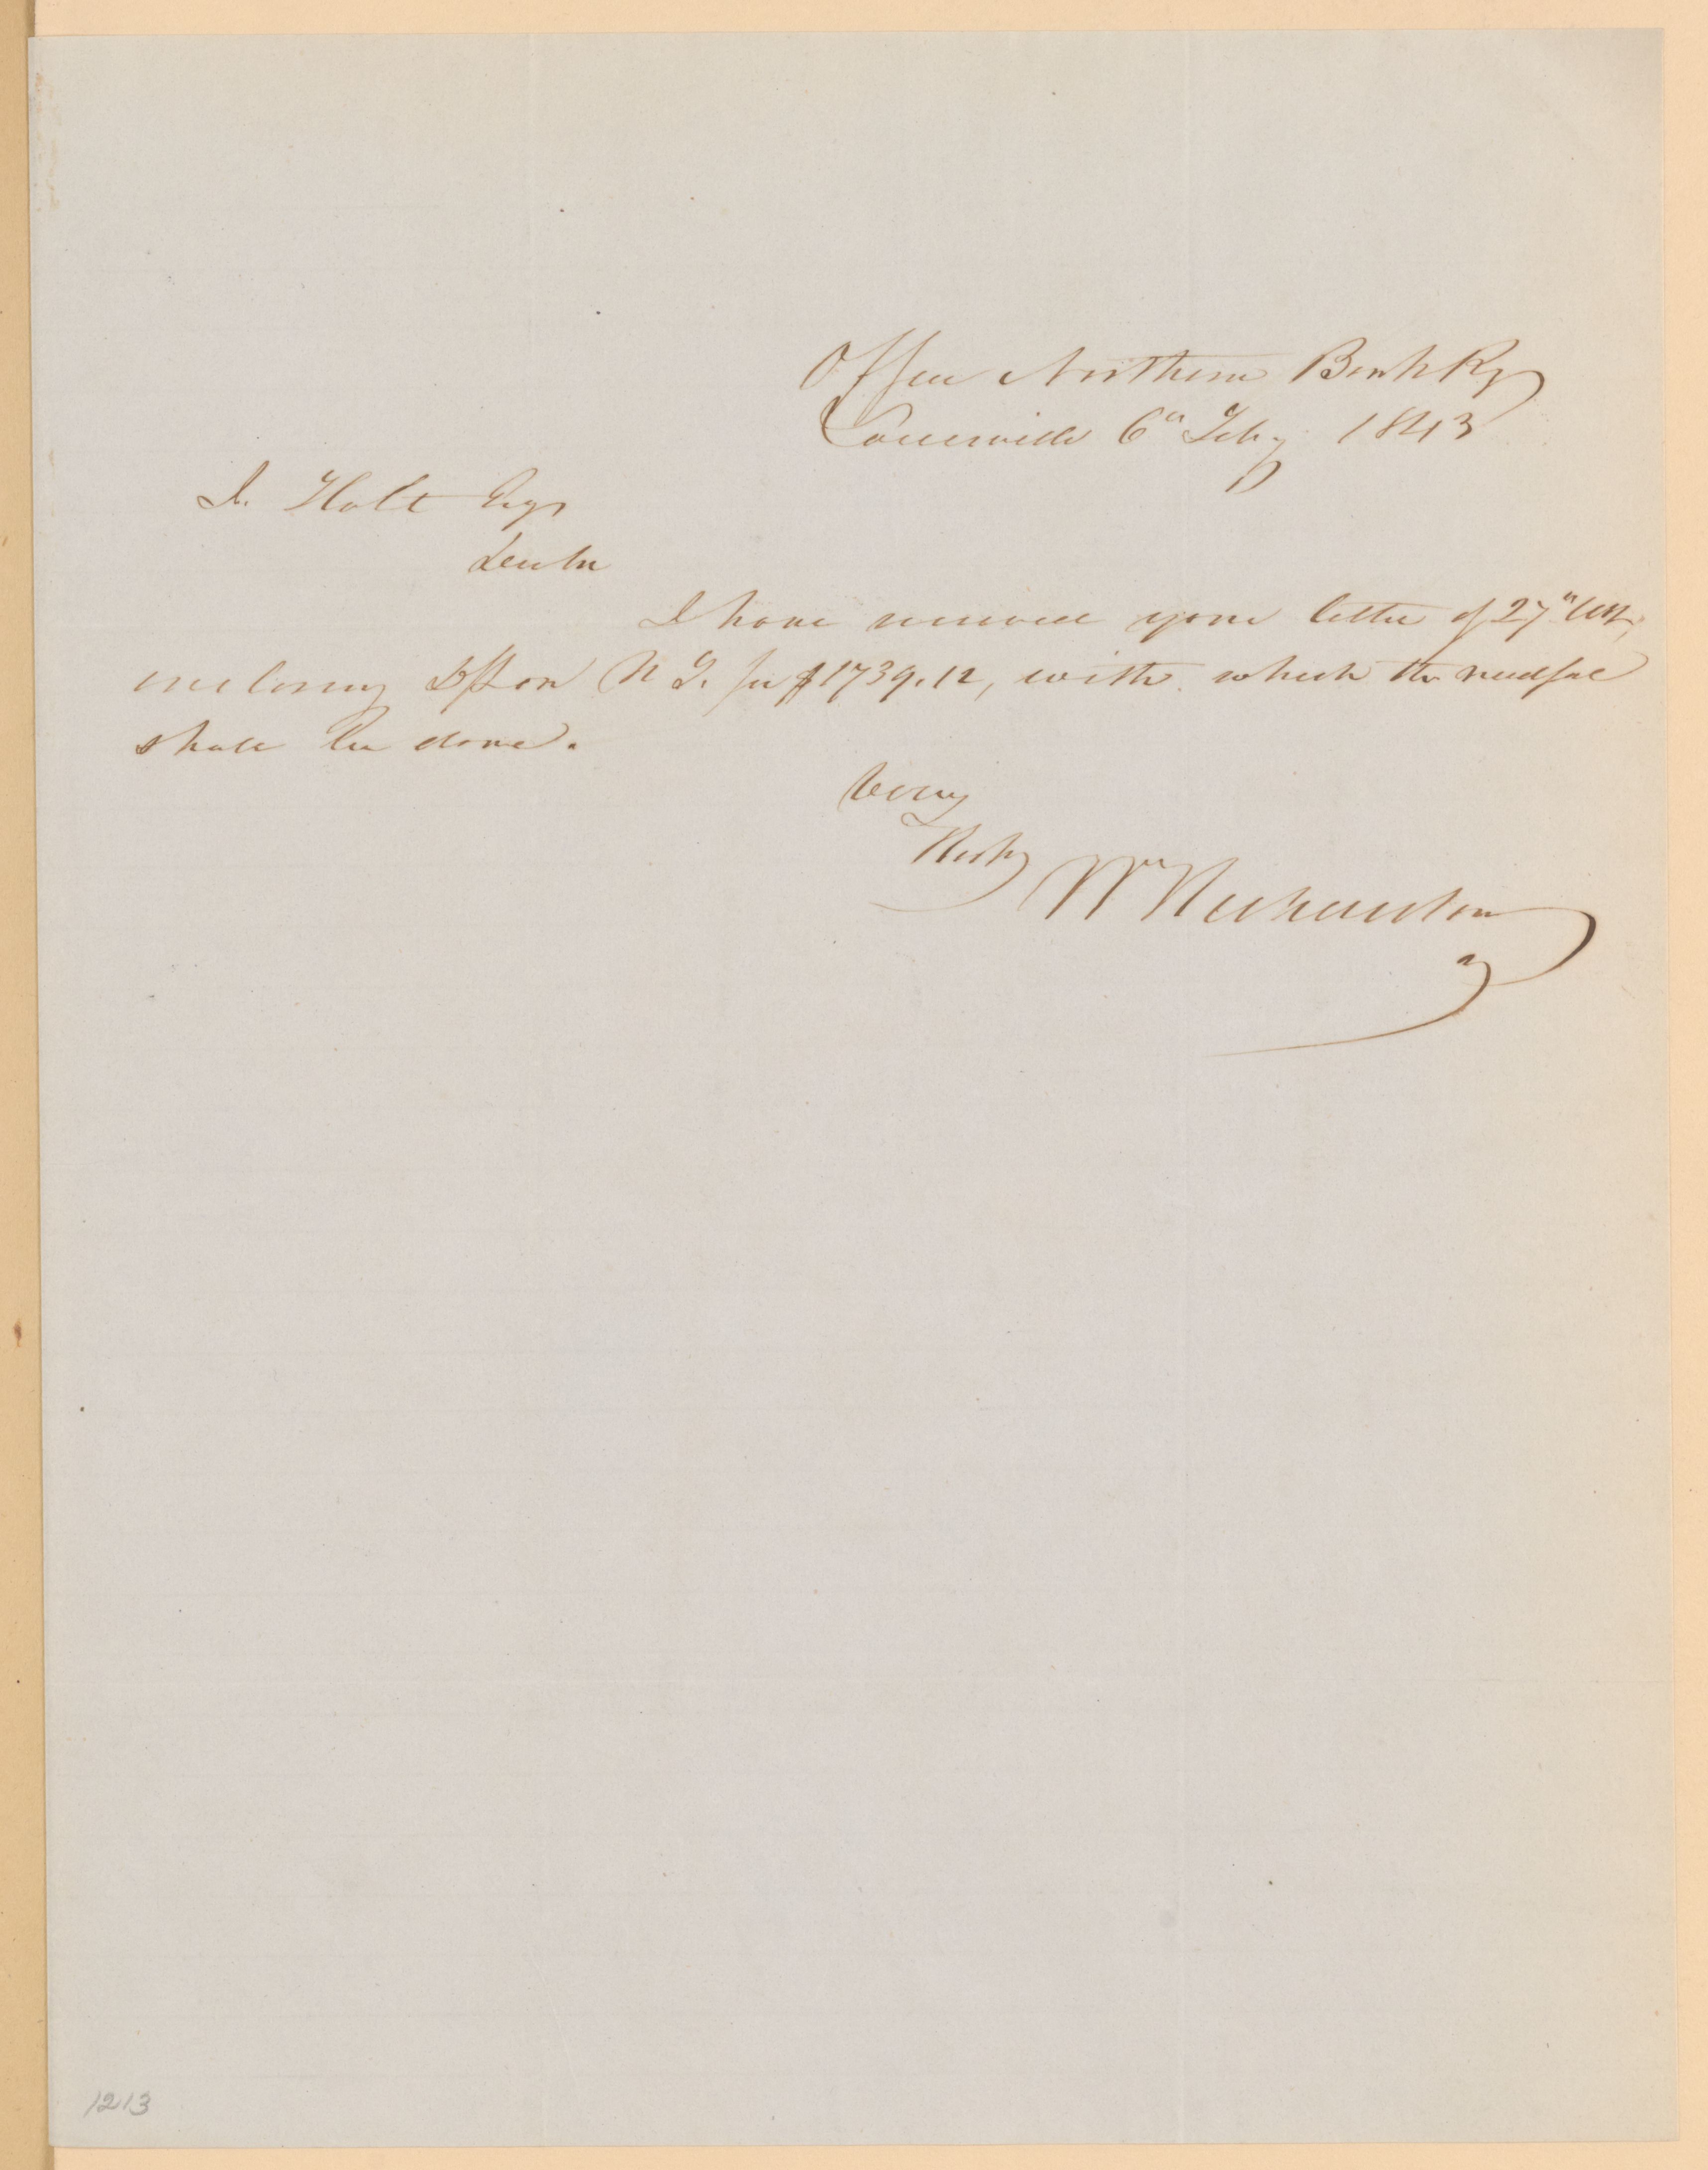 Office Northern Bank Ky
Louisville 6th Feby 1843
J. Holt Esqr
Dear Sir
I have received your letter of 27th Ult,
enclosing Dft on N Y. for $1739.12, with which the needful
shall be done.
Very
Resky
Wm Richardson
1213